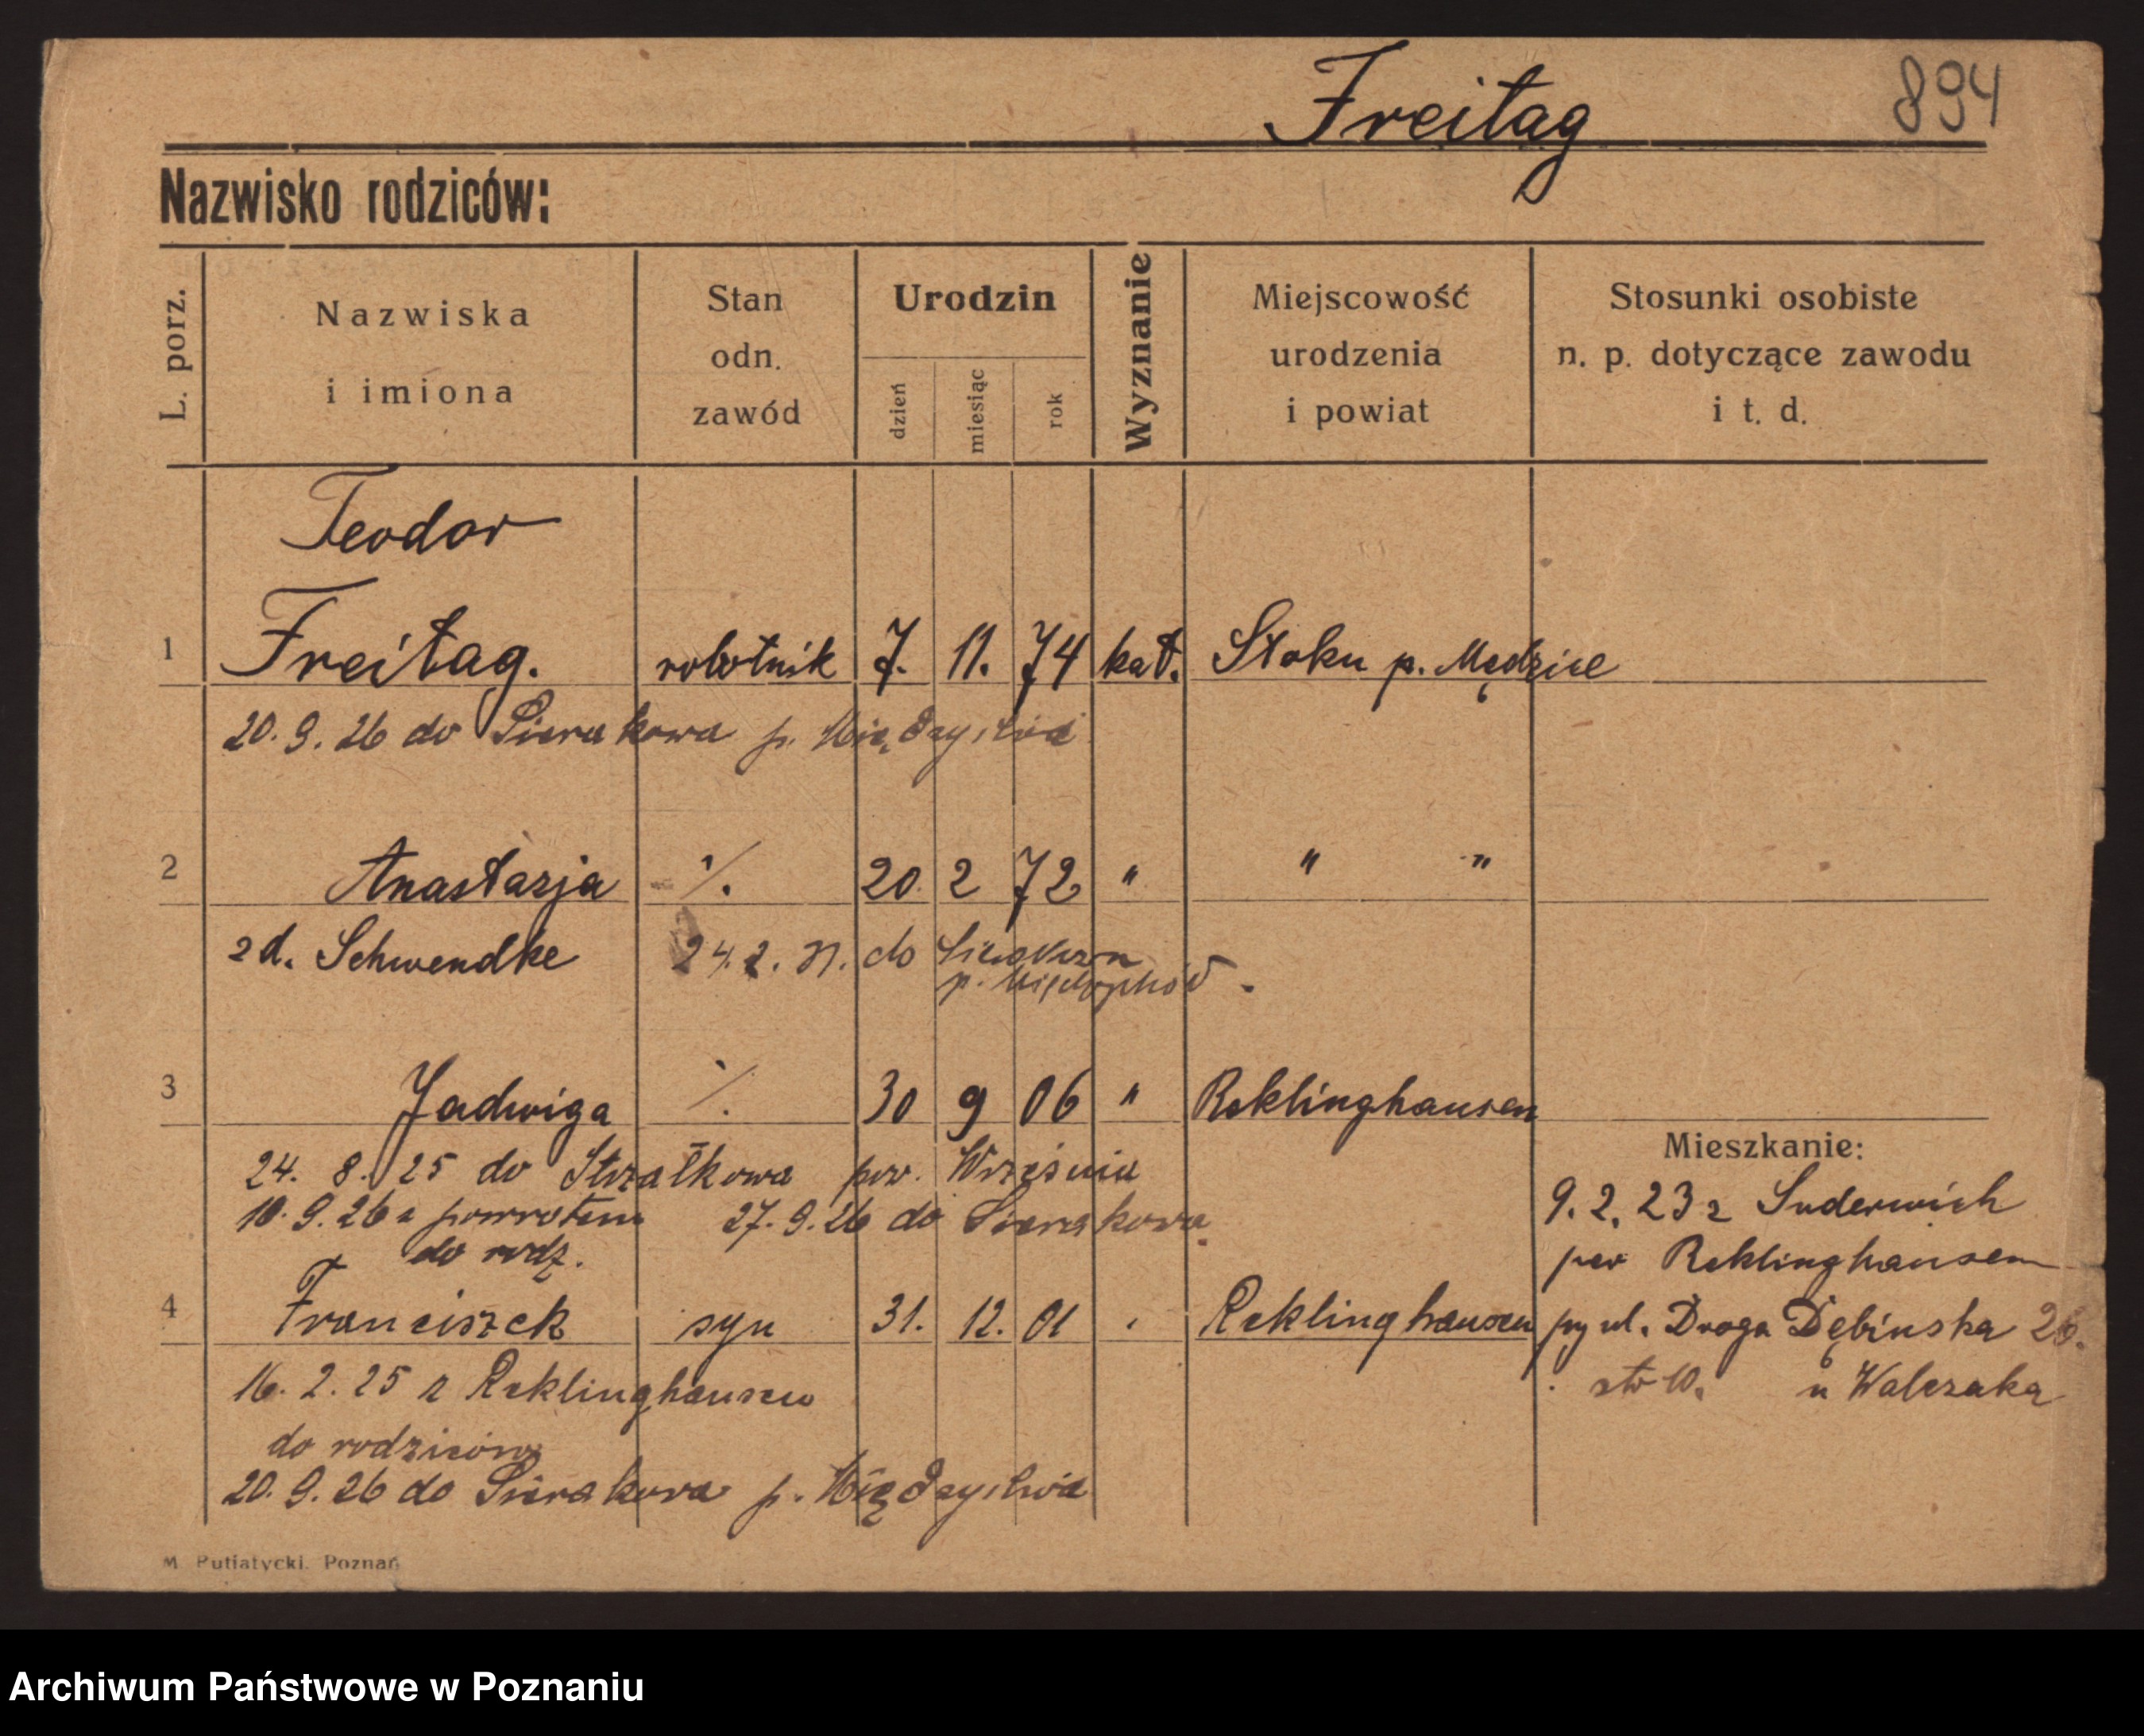 Freitag 894
Nazwisko rodziców:
L. porz.
Nazwiska
i imiona
Stan
odn.
zawód
Urodzin
dzień
miesiąc
rok
Wyznanie
Miejscowość
urodzenia
i powiat
Stosunki osobiste
n. p. dotyczące zawodu
i t. d.
Teodor
1 Freitag. robotnik 7. 11. 74 kat. Stoku p.
20. 9. 26 do Sierakowa p.
2 Anastazja ·/. 20. 2 72 " " "
zd. Schwendke 24. 2. do
3 Jadwiga ·/. 30 9 06 " Reklinghausen
24. 8. 25 do Strzałkowa pow. Września
10. 9. 26 z powrotem 27. 9. 26 do Sierakowa.
do rodz.
4 Franciszek syn 31. 12. 01 Reklinghausen
16. 2. 25 z Reklinghausen
do rodziców
20. 9. 26 do Sierakowa p.
Mieszkanie:
9. 2. 23 z Suderwich
pow Reklinghausen
ul. Droga Dębinska 26.
u Walczaka
M. Putiatycki. Poznań
Archiwum Państwowe w Poznaniu